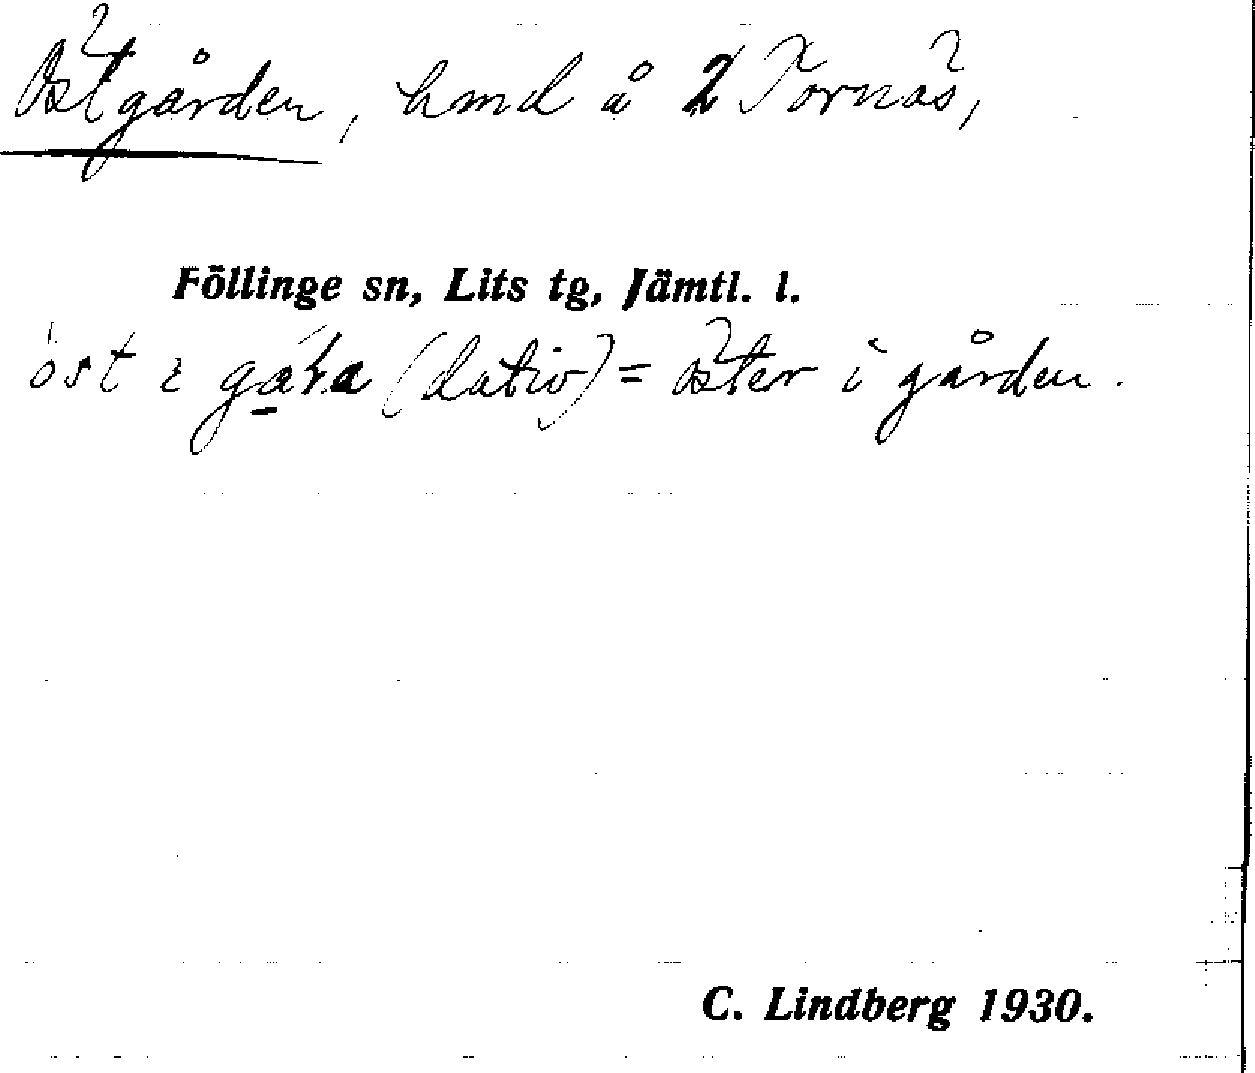 Östgården, hmd å 2 Tornäs,
Föllinge sn, Lits tg, Jämtl. l.
öst i gára (dativ) = öster i gården.
C. Lindberg 1930.